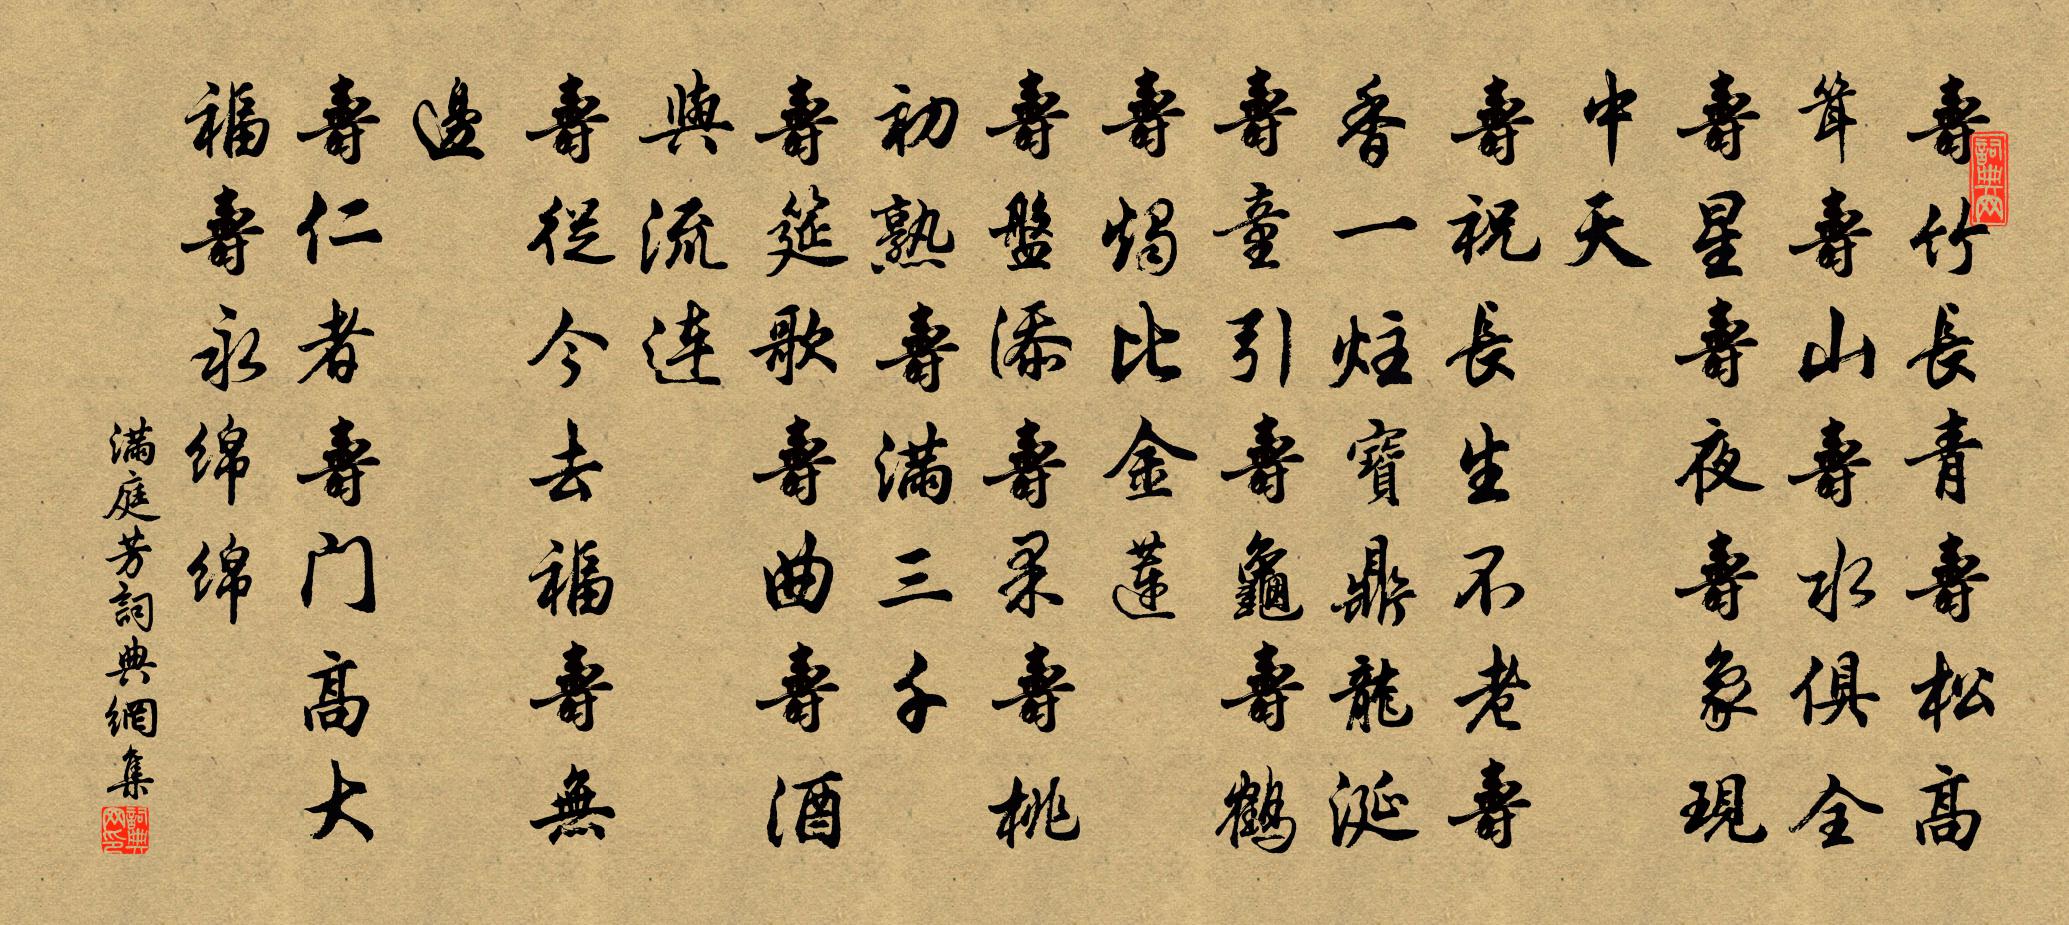 壽竹長青壽松高
聳壽山壽水俱全
壽星壽夜壽象現
中天
壽祝長生不老壽
香一炷寶鼎龍涎
壽童引壽龜壽鶴
壽燭比金蓮
壽盤添壽果壽桃
初熟壽滿三千
壽筵歌壽曲壽酒
與流連
壽從今去福壽無
邊
壽仁者壽门高大
福壽永綿綿
滿庭芳詞典網集
詞典网
詞典网印